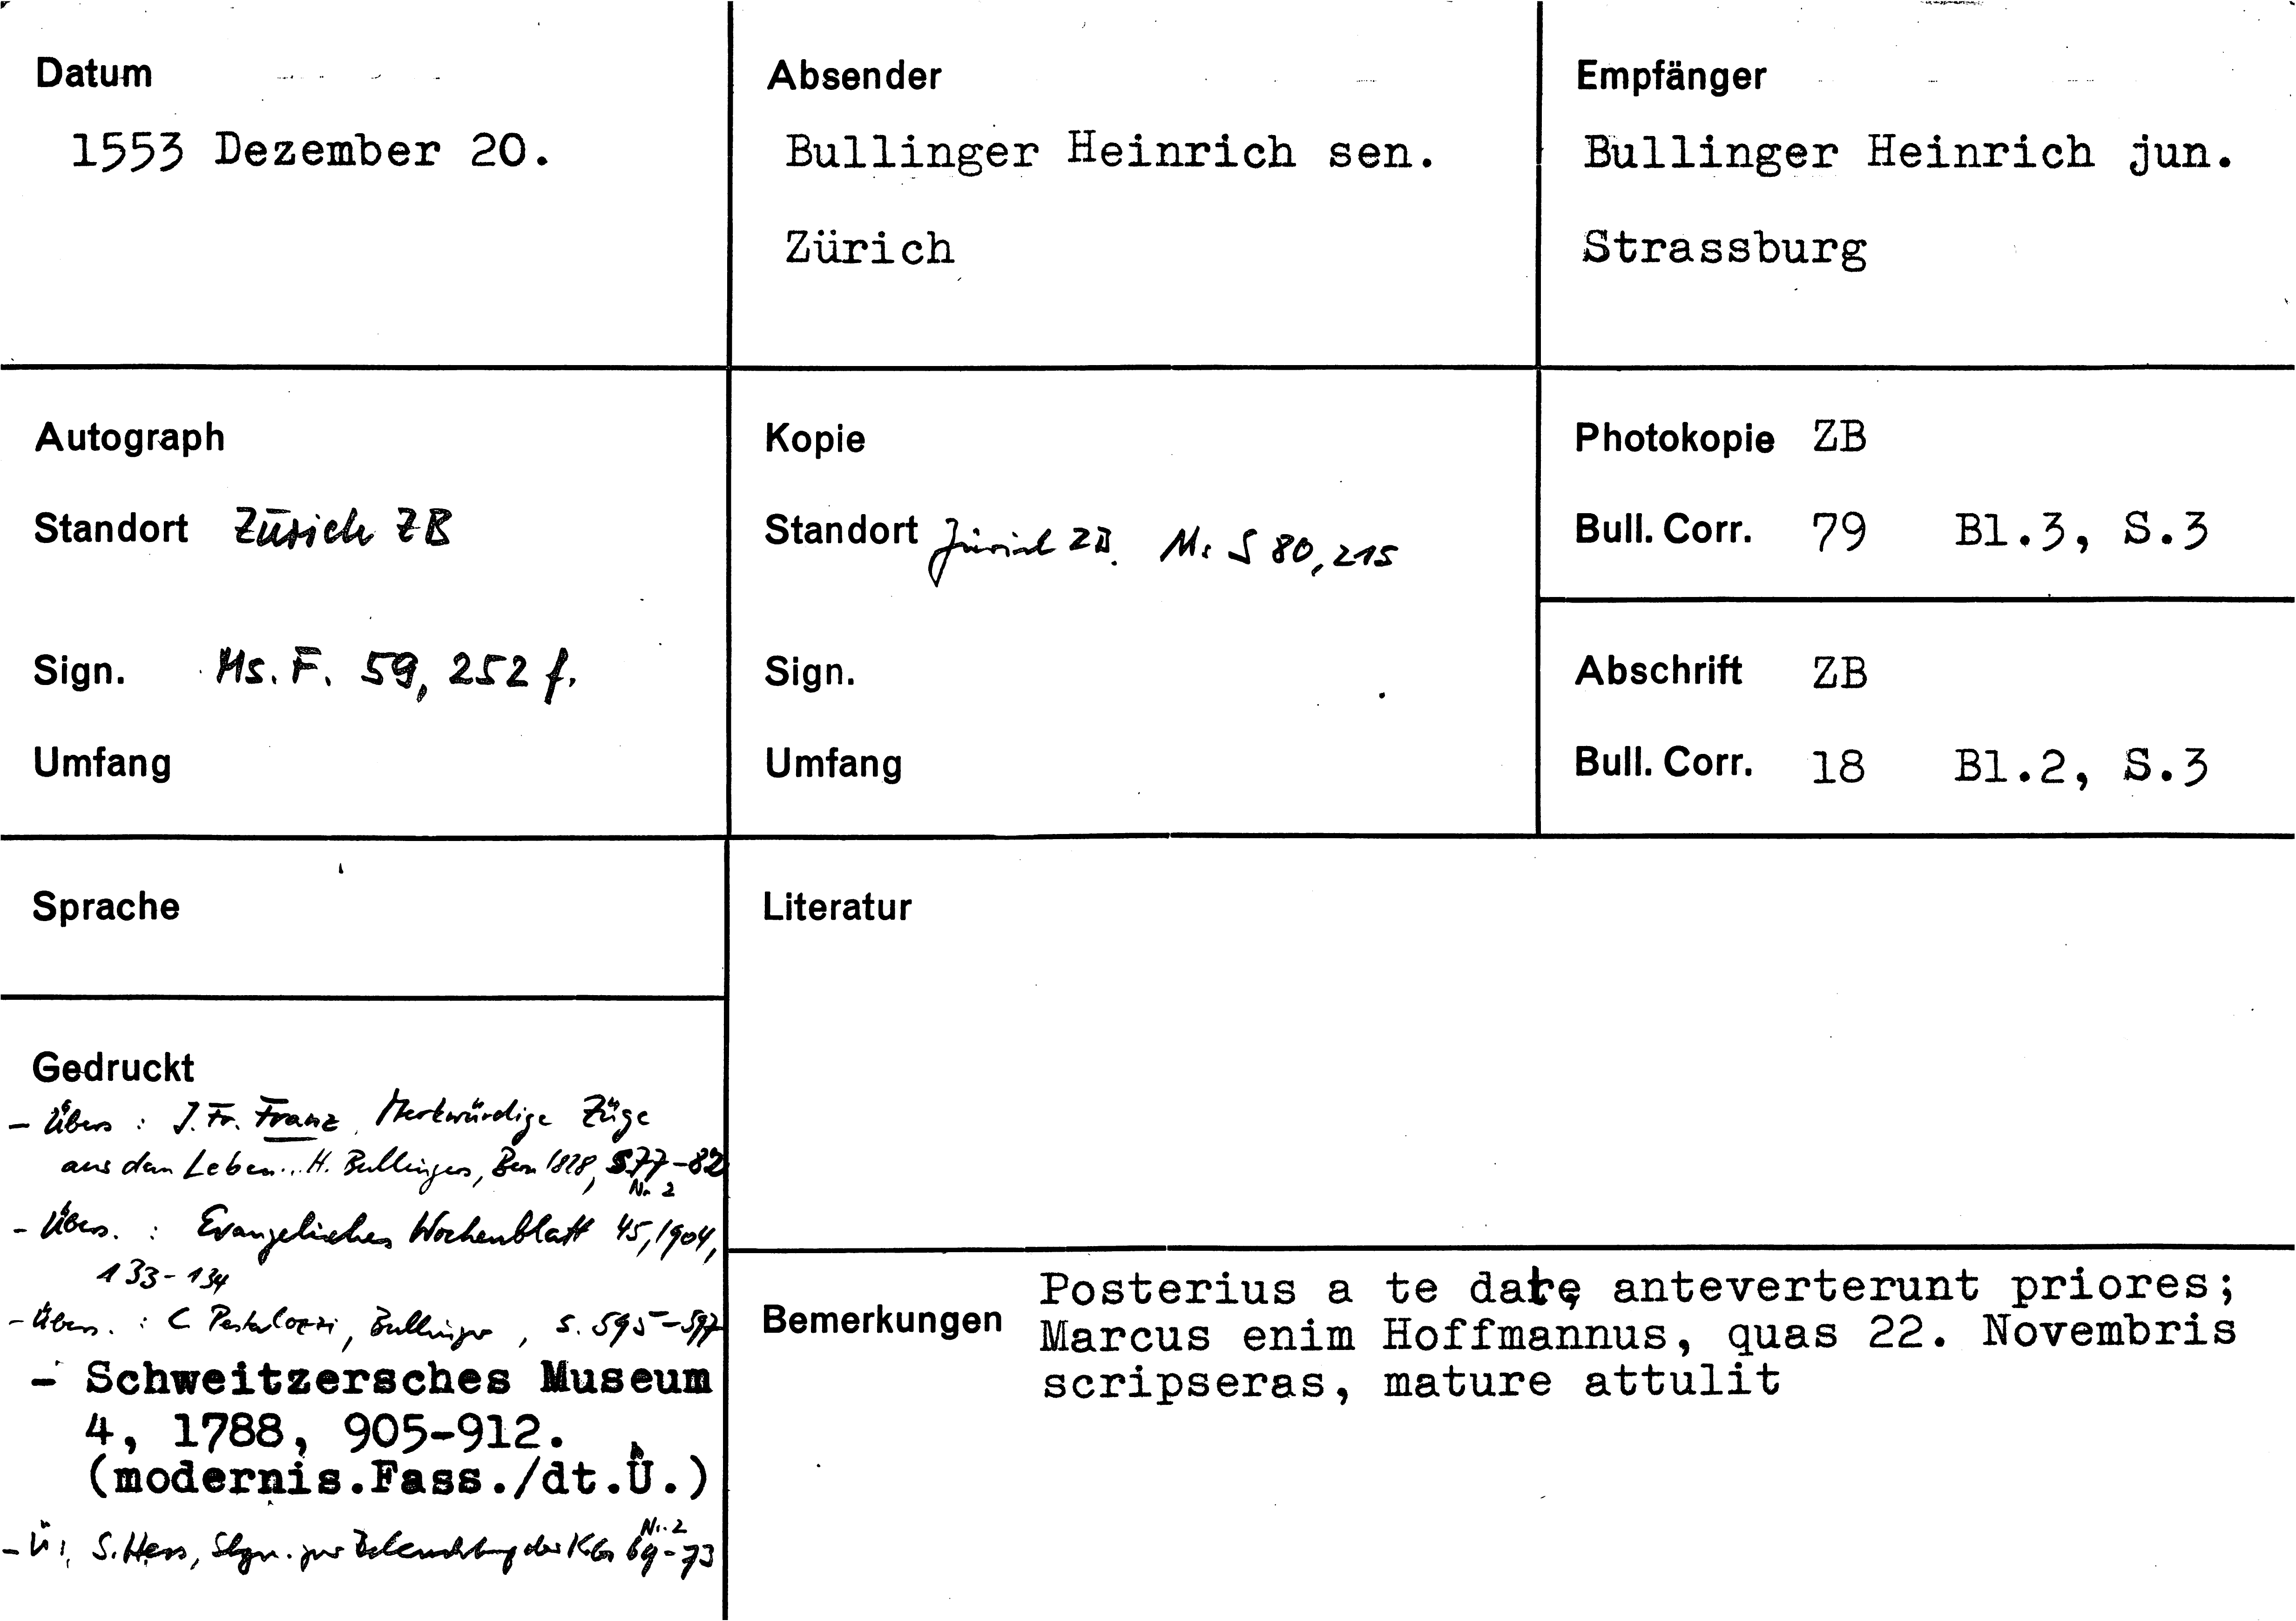 Datum
1553 Dezember 20.
Absender
Bullinger Heinrich sen.
Zürich
Empfänger
Bullinger Heinrich jun.
Strassburg
Autograph
Standort Zürich ZB
Sign. Ms. F. 59, 252 f.
Umfang
Kopie
Standort Zürich ZB. Ms S 80, 215
Sign.
Umfang
Photokopie ZB
Bull. Corr. 79 Bl.3, S.3
Abschrift ZB
Bull. Corr. 18 Bl.2, S.3
Sprache
Gedruckt
- Übers : J. Fr. Franz, Merkwürdige Züge
aus dem Leben... H. Bullingers, Bern 1828, S 77-82
Nr. 2
- Übers. : Evangelisches Wochenblatt 45, 1904,
133-134
- Übers. : C Pestalozzi, Bullinger, S. 595-597
- Schweitzersches Museum
4, 1788, 905-912.
(modernis.Fass./dt.Ü.)
Nr. 2
- Ü: S. Hess, Slgn. zur Beleuchtung der KG 69-73
Literatur
Bemerkungen
Posterius a te datę anteverterunt priores;
Marcus enim Hoffmannus, quas 22. Novembris
scripseras, mature attulit